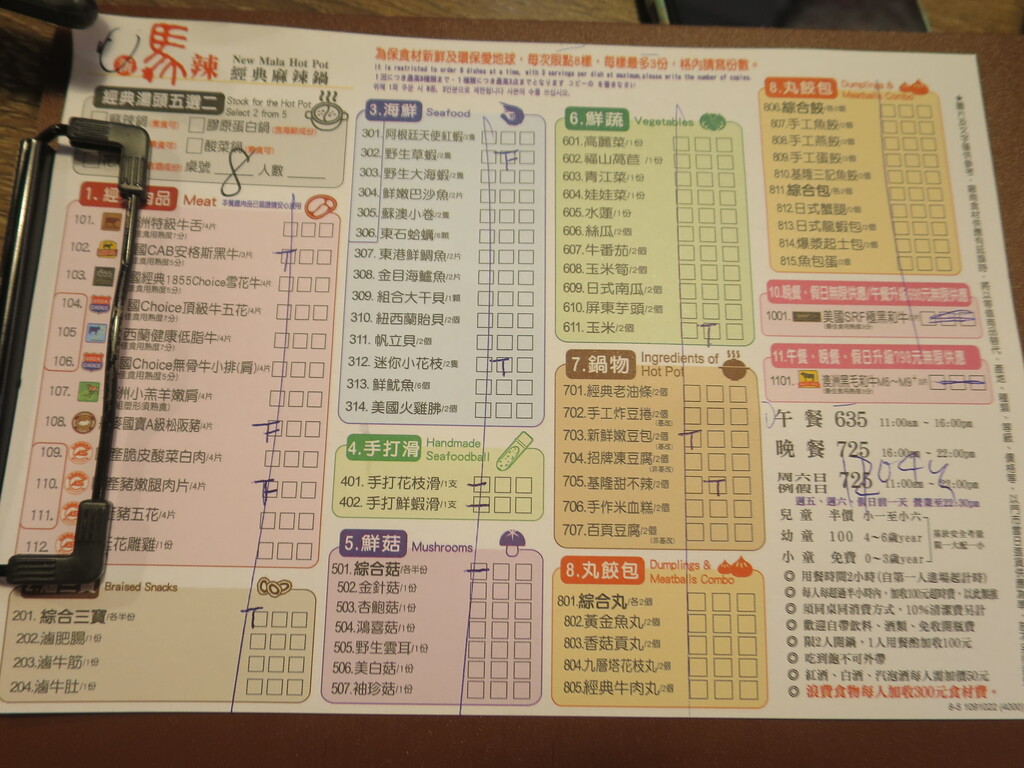 馬辣
New Mala Hot Pot
經典麻辣鍋
為保食材新鮮及環保愛地球,每次限點8樣,每樣最多3份,格內請寫份數。
經典湯頭五選二
Stock for the Hot Pot
Select 2 from 5
膠原蛋白鍋
酸菜鍋
桌號 8 人數
1.
Meat
101.
洲特級牛舌/4片
102.
國CAB安格斯黑牛/3片
103.
國經典1855Choice雪花牛/4片
104.
國Choice頂級牛五花/4片
105
西蘭健康低脂牛/4片
106.
國Choice無骨牛小排(肩)/4片
107.
洲小羔羊嫩肩/4片
108.
國寶A級松阪豬/4片
109.
產脆皮酸菜白肉/4片
110.
產豬嫩腿肉片/4片
111.
豬五花/4片
112.
花雕雞/1份
Braised Snacks
201.綜合三寶/各半份
202.滷肥腸/1份
203.滷牛筋/1份
204.滷牛肚/1份
3.海鮮 Seafood
301.阿根廷天使紅蝦/2隻
302.野生草蝦/2隻
303.野生大海蝦/2隻
304.鮮嫩巴沙魚/2片
305.蘇澳小卷/2隻
306.東石蛤蠣/6顆
307.東港鮮鯛魚/2片
308.金目海鱸魚/2片
309.組合大干貝/1顆
310.紐西蘭貽貝/2個
311.帆立貝/2個
312.迷你小花枝/2隻
313.鮮魷魚/6個
314.美國火雞胇/2個
4.手打滑 Handmade
Seafoodball
401.手打花枝滑/1支
402.手打鮮蝦滑/1支
5.鮮菇 Mushrooms
501.綜合菇/各半份
502.金針菇/1份
503.杏鮑菇/1份
504.鴻喜菇/1份
505.野生雲耳/1份
506.美白菇/1份
507.袖珍菇/1份
6.鮮蔬 Vegetables
601.高麗菜/1份
602.福山萵苣/1份
603.青江菜/1份
604.娃娃菜/1份
605.水蓮/1份
606.絲瓜/2個
607.牛番茄/2個
608.玉米筍/2個
609.日式南瓜/2個
610.屏東芋頭/2個
611.玉米/2個
7.鍋物 Ingredients of
Hot Pot
701.經典老油條/2個
702.手工炸豆捲/2個
703.新鮮嫩豆包/2個
704.招牌凍豆腐/2個
705.基隆甜不辣/2個
706.手作米血糕/2個
707.百頁豆腐/2個
8.丸餃包 Dumplings &
Meatballs Combo
801.綜合丸/各2個
802.黃金魚丸/2個
803.香菇貢丸/2個
804.九層塔花枝丸/2個
805.經典牛肉丸/2個
8.丸餃包 Dumplings &
Meatballs Combo
806.綜合餃
807.手工魚餃
808.手工燕餃
809.手工蛋餃
810.基隆三記魚餃
811.綜合包
812.日式蟹腿
813.日式龍蝦包
814.爆漿起士包
815.魚包蛋
10.晚餐、假日無限供應/午餐升級
1001.
美國SRF極黑和牛
11.午餐、晚餐、假日升級798元無限供應
1101.
澳洲黑毛和牛M6~M9+
午餐 635 11:00am ~ 16:00pm
晚餐 725 16:00pm ~ 22:00pm
周六日
例假日 725 11:00am ~ 22:00pm
週五、週六、假日前一天 營業至22:30pm
兒童 半價 小一至小六
幼童 100 4~6歲
小童 免費 0~3歲
◎ 用餐時間2小時(自第一人進場起計時)
◎ 每人每超過半小時內,加收100元超時費,以此類推
◎ 須同桌同消費方式,10%清潔費另計
◎ 歡迎自帶飲料、酒類、免收開瓶費
◎ 限2人開鍋,1人用餐酌加收100元
◎ 吃到飽不可外帶
◎ 紅酒、白酒、汽泡酒每人需加價50元
◎ 浪費食物每人加收300元食材費。
8-5 1091022 (4000)